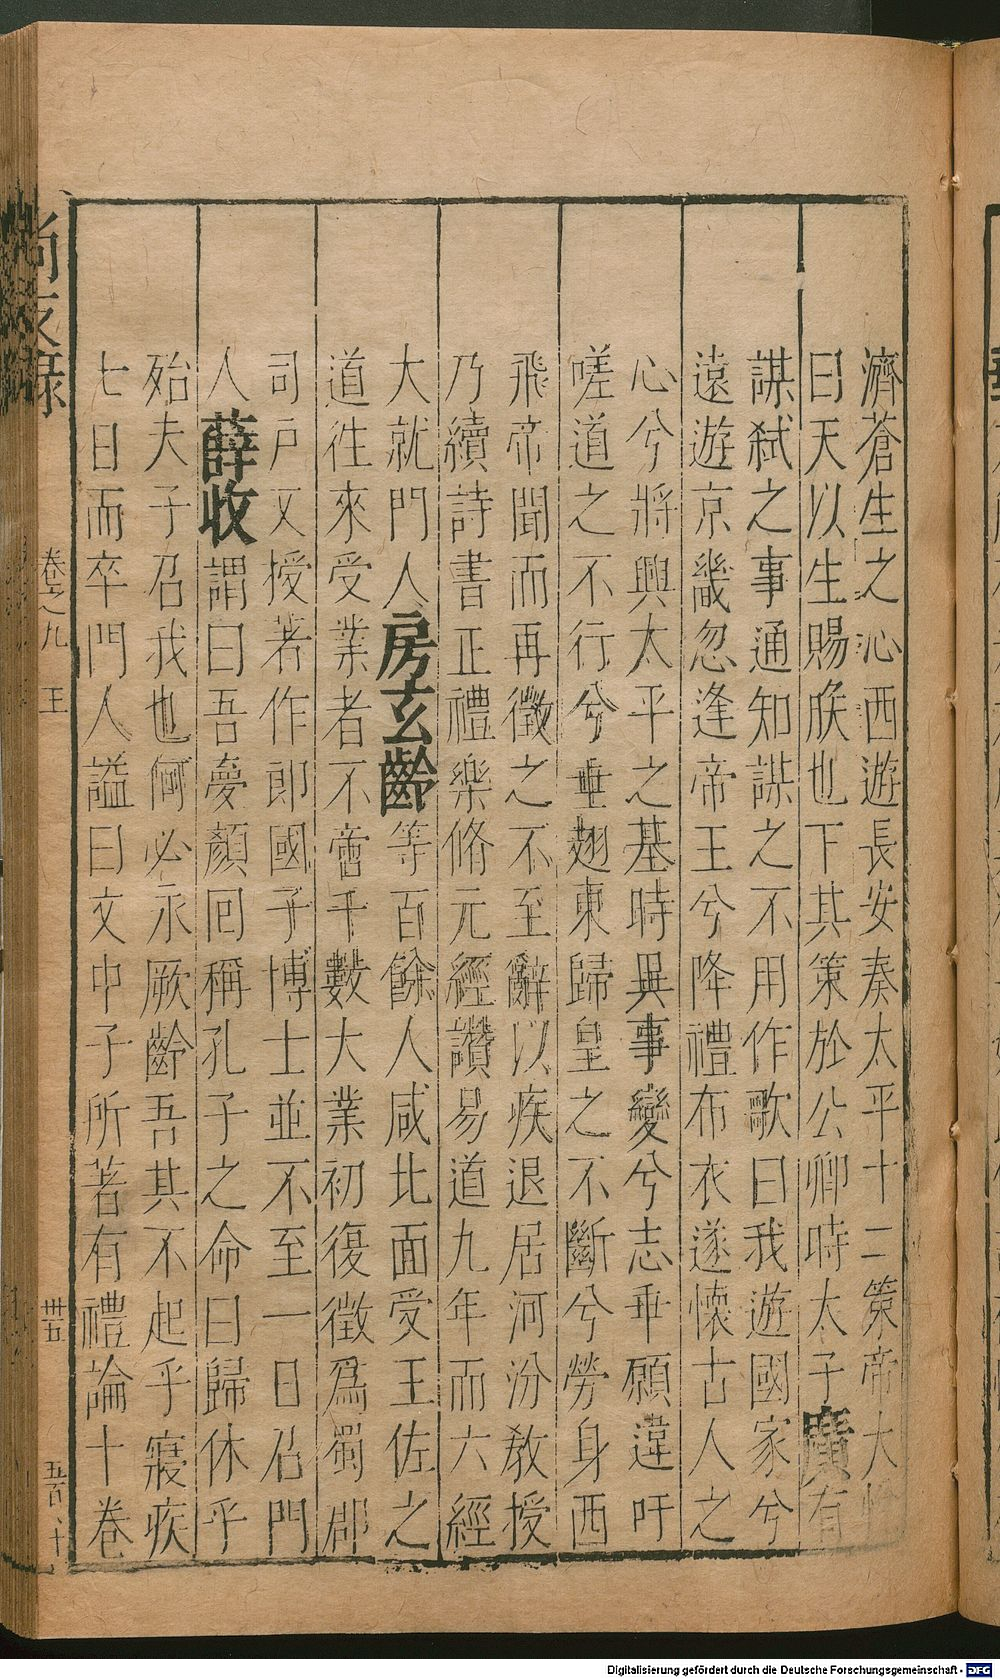 濟蒼生之心西遊長安奏太平十二策帝大
曰天以生賜朕也下其策於公卿時太子廣有
謀弑之事通知謀之不用作歌曰我遊國家兮
遠遊京畿忽逢帝王兮降禮布衣遂懐古人之
心兮將興太平之基時異事變兮志乖願違吁
嗟道之不行兮垂翅東歸皇之不斷兮勞身西
飛帝聞而再徵之不至辭以疾退居河汾敎授
乃續詩書正禮樂脩元經讚易道九年而六經
大就門人房玄齡等百餘人咸北面受王佐之
道往來受業者不啻千數大業初復徵爲蜀郡
司戸又授著作郎國子博士並不至一日召門
人薛收謂曰吾夢顏回稱孔子之命曰歸休乎
殆夫子召我也何必永厥齡吾其不起乎寢疾
七日而卒門人謚曰文中子所著有禮論十卷
尚友錄
卷之九 王
卅五
Digitalisierung gefördert durch die Deutsche Forschungsgemeinschaft - DFG